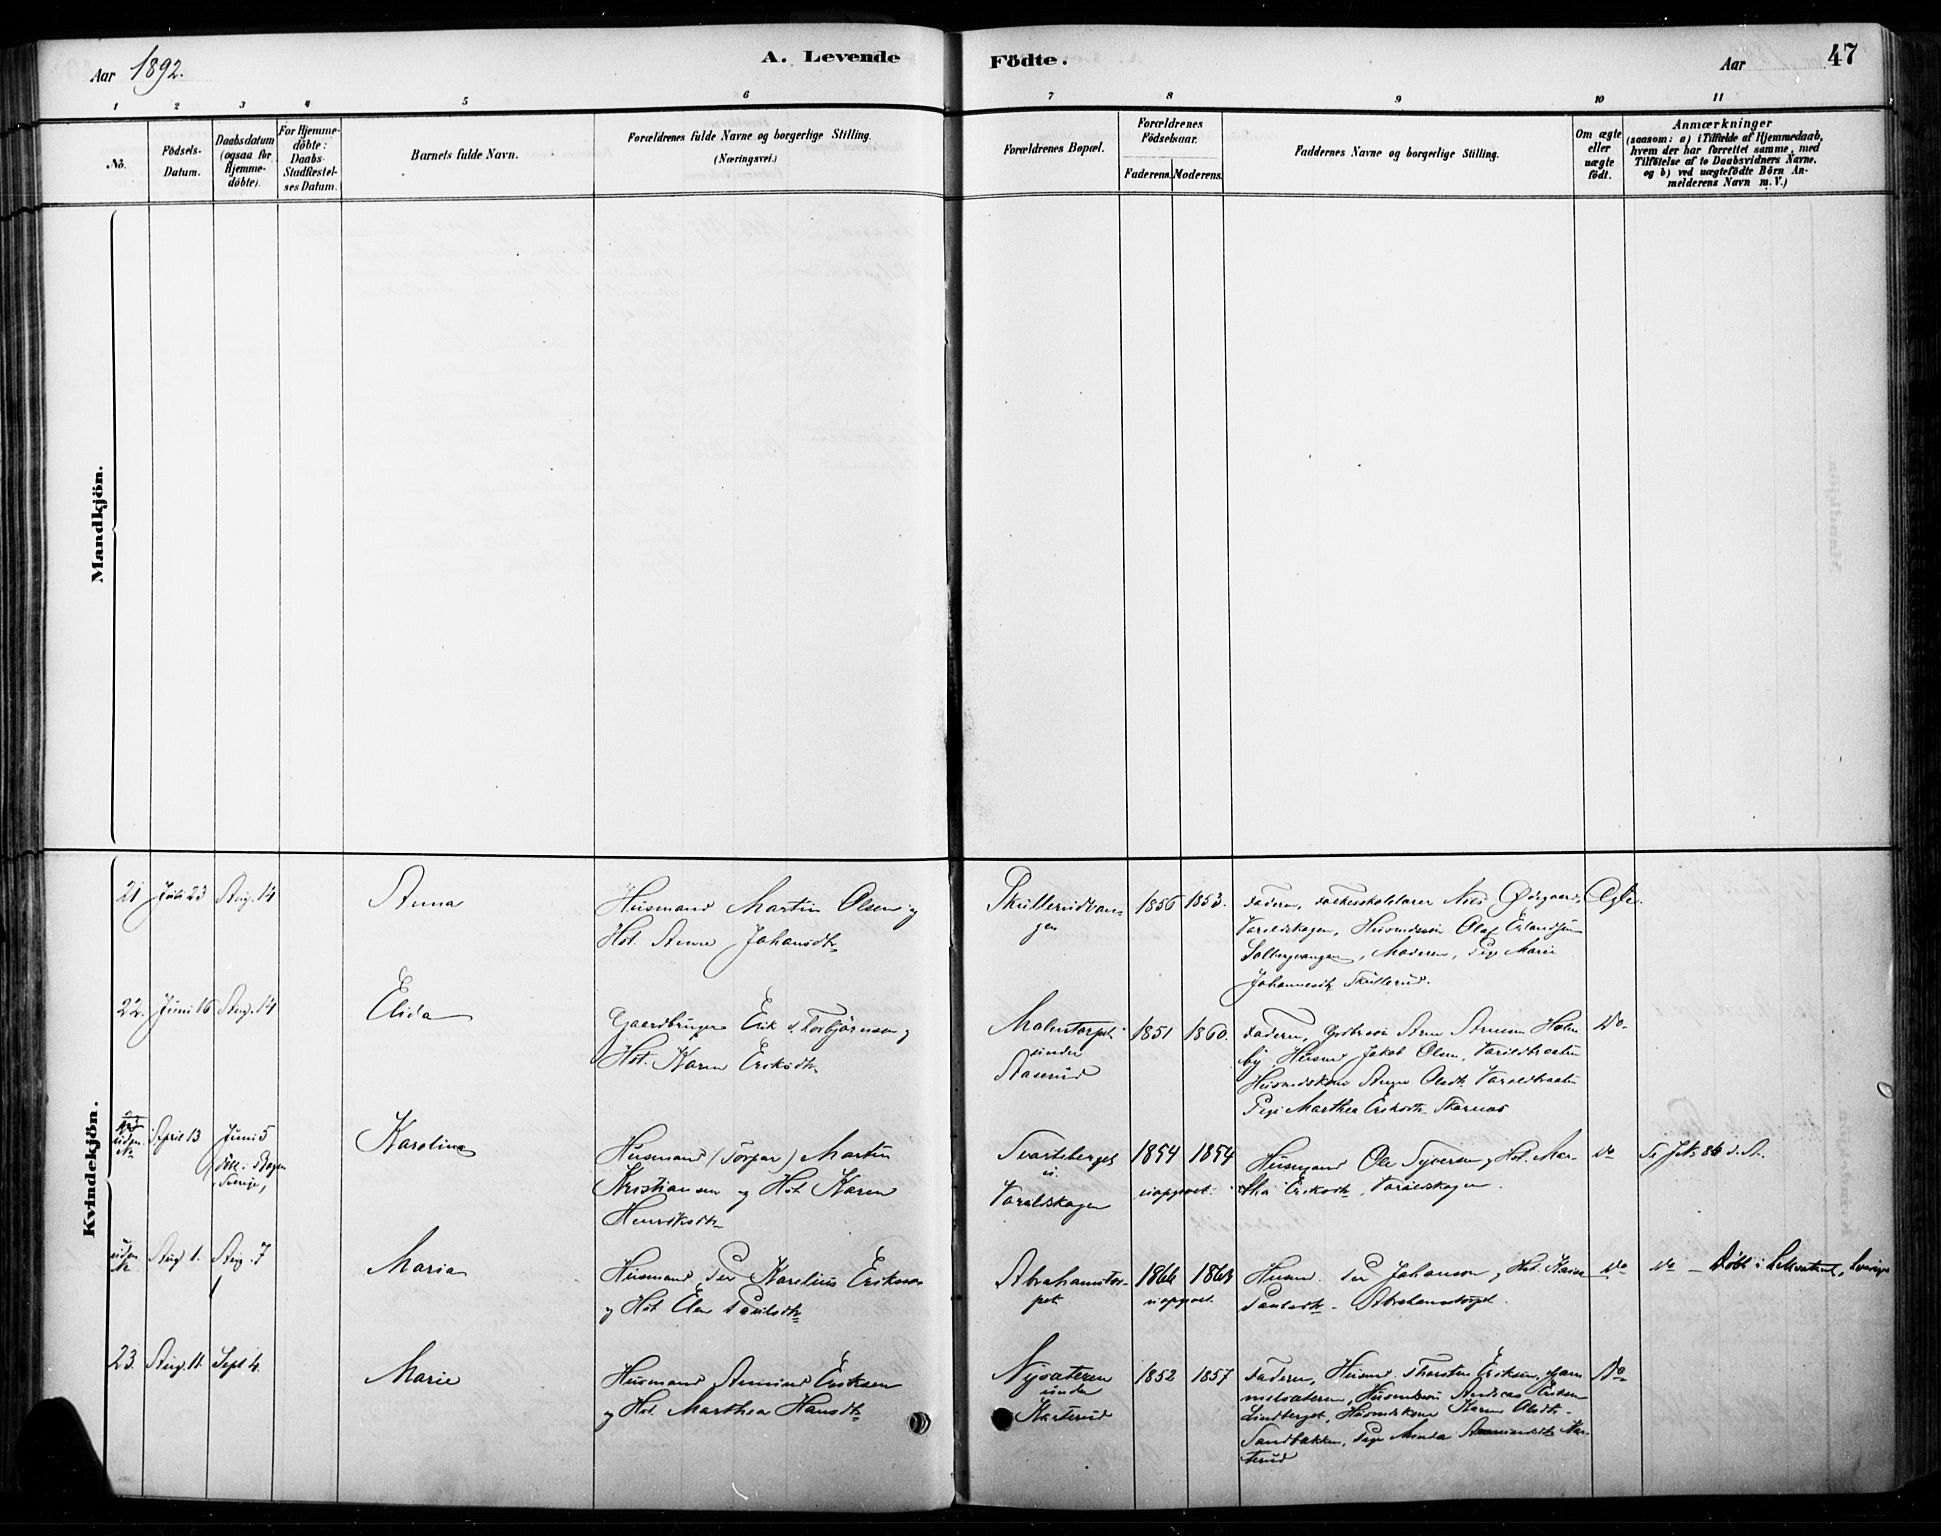 Aar 1892.
A. Levende
Födte.
Aar
47
1
2
3
4
5
6
7
8
9
10
11
No.
Födsels-
Datum.
Daabsdatum
(ogsaa for
Hjemme-
döbte).
For Hjemme-
döbte:
Daabs-
Stadfæstel-
ses Datum.
Barnets fulde Navn.
Forældrenes fulde Navne og borgerlige Stilling.
(Næringsvei.)
Forældrenes Bopæl.
Forældrenes
Födselsaar.
Faderens.
Moderens.
Faddernes Navne og borgerlige Stilling.
Om ægte
eller
uægte
födt.
Anmærkninger
(saasom: a) i Tilfælde af Hjemmedaab,
hvem der har forrettet samme, med
Tilföielse af to Daabsvidners Navne,
og b) ved uægtefödte Börn An-
melderens Navn m. V.)
Mandkjön.
Kvindekjön.
21
Juli 23
Aug. 14
Anna
Husmand Martin Olsen og
Hst. Anne Johansdtr
Skullerudvan-
gen
1856
1853.
Faderen, Folkeskolelærer Nils Ødegaard,
Varaldskogen, Husmandssøn Olaf Erlandsen
Solbergvangen, Moderen, Pige Marie
Johannesdtr Skullerud.
Ægte.
22.
Juni 16
Aug. 14
Elida
Gaardbruger Erik Torbjørnsen og
Hst. Karen Eriksdtr
Malmtorpet
under
Aaserud
1851
1860.
Faderen, Arne Arnesen Holm-
by, Husmd Jakob Olsen, Varaldbraaten
Huusmdskone Olsdtr Varaldbraaten
Pige Marthea Eriksdtr Skarnæs
Do
uden
No
April 13
Juni 5
döbt i Bogen
Sverige,
Karolina
Husmand (Torpar) Martin
Kristiansen og Hst. Karen
Henriksdtr
Svarteberget
u.
Varaldskogen
1854
1854
uopgivet.
Husmand Ole Syversen og Hst. Mar-
tha Eriksdtr, Varaldskogen.
do
uden
No
Aug 1.
Aug. 7
Maria
Husmand Per Karelius Eriksen
og Hst. Paulsdtr
Abrahamstor-
pet
1866
1863
uopgivet.
Husmd. Per Johanson og Hst. Kaisa
Paulsdtr - Abrahamstorpet.
do
do - Döbt i Sverige
23.
Aug. 11.
Sept 4.
Marie
Husmand Amund Eriksen
og Hst. Marthea Hansdtr
Nysæteren
under
Karterud
1852
1857
Faderen, Husmd. Thorsten Eriksen, Gam-
melsæteren, Andreas Eriksen
Lindberget, Husmdskone Karen Olsdtr
Sandbakken, Pige Minda Amundsdtr Kar-
terud
Do